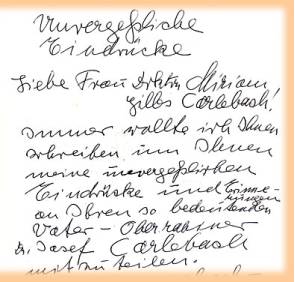 Unvergeßliche
Eindrücke
Liebe Frau Drktn Miriam
Gilles Carlebach!
Immer wollte ich Ihnen
schreiben um Ihnen
meine unvergeßlichen
Eindrücke und Erinne-
rungen
an Ihren so bedeutenden
Vater - Oberrabiner
Dr. Josef Carlebach
mitzuteilen.